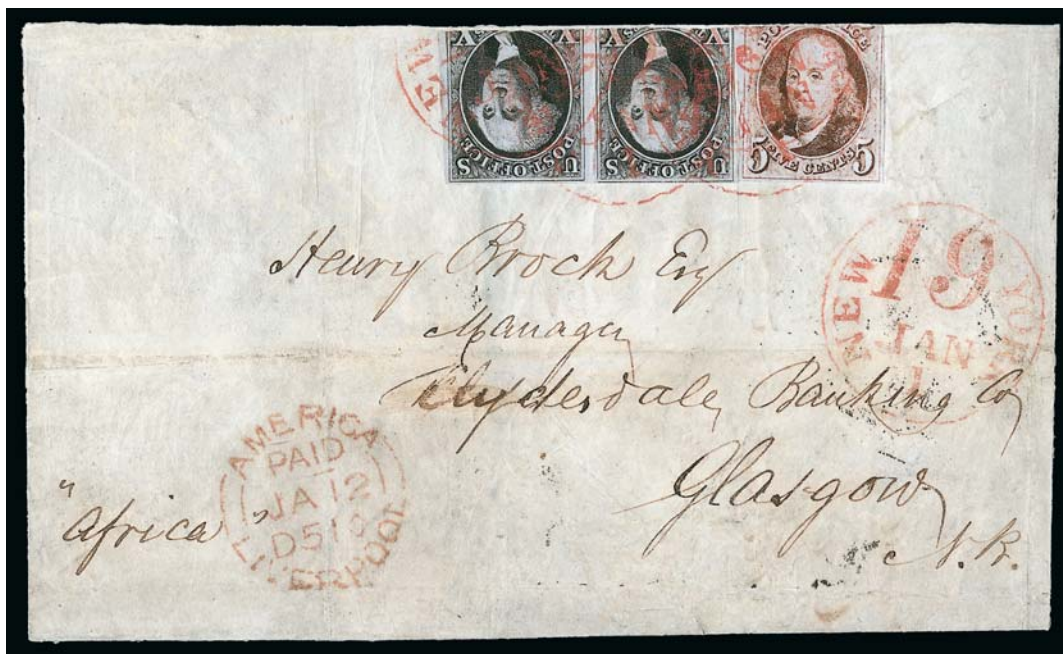 X X
U POST OFFICE S
X X
U POST OFFICE S
POST OFFICE
5 FIVE CENTS 5
NEW YORK
19
JAN
1
Henry Brock Esq
Manager
Clydesdale Banking Co
Glasgow
N.B.
"Africa"
AMERICA
PAID
JA 12
LIVERPOOL